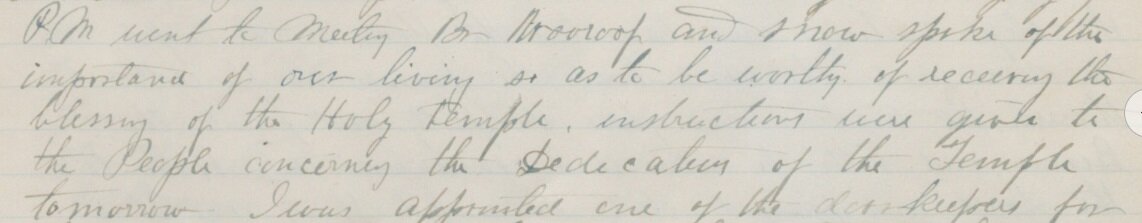 P.M went to Meeting Br Woodroof and Snow spoke of the
importance of our living so as to be worthy of receiving the
blessing of the Holy Temple, instructions were given to
the People concerning the Dedication of the Temple
tomorrow I was appointed one of the doorkeepers for